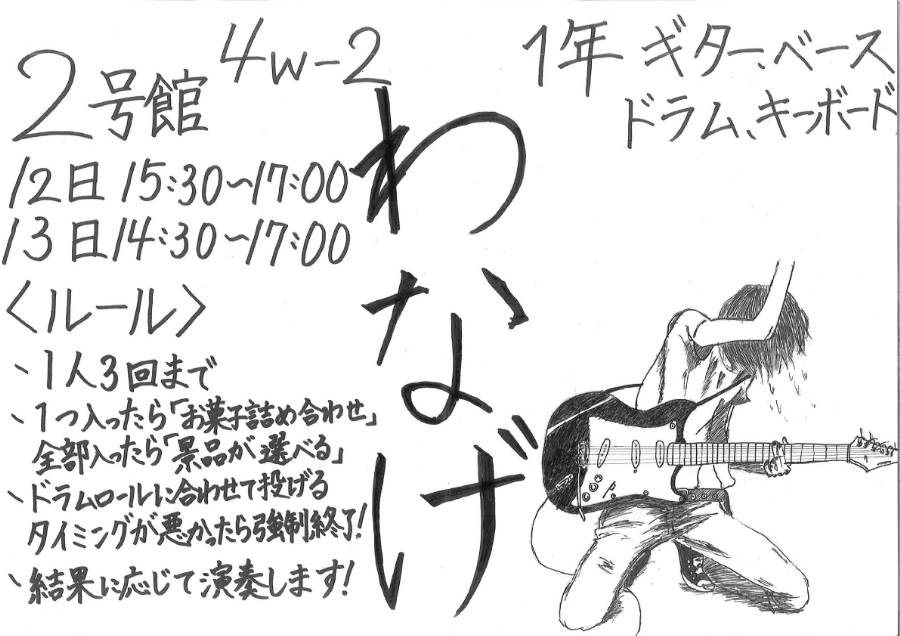 4w-2
2号館
12日 15:30〜17:00
13日 14:30〜17:00
〈ルール〉
、1人3回まで
、1つ入ったら「お菓子詰め合わせ」
全部入ったら「景品が選べる」
、ドラムロールに合わせて投げる
タイミングが悪かったら強制終了!
、結果に応じて演奏します!
わなげ
1年 ギター、ベース
ドラム、キーボード